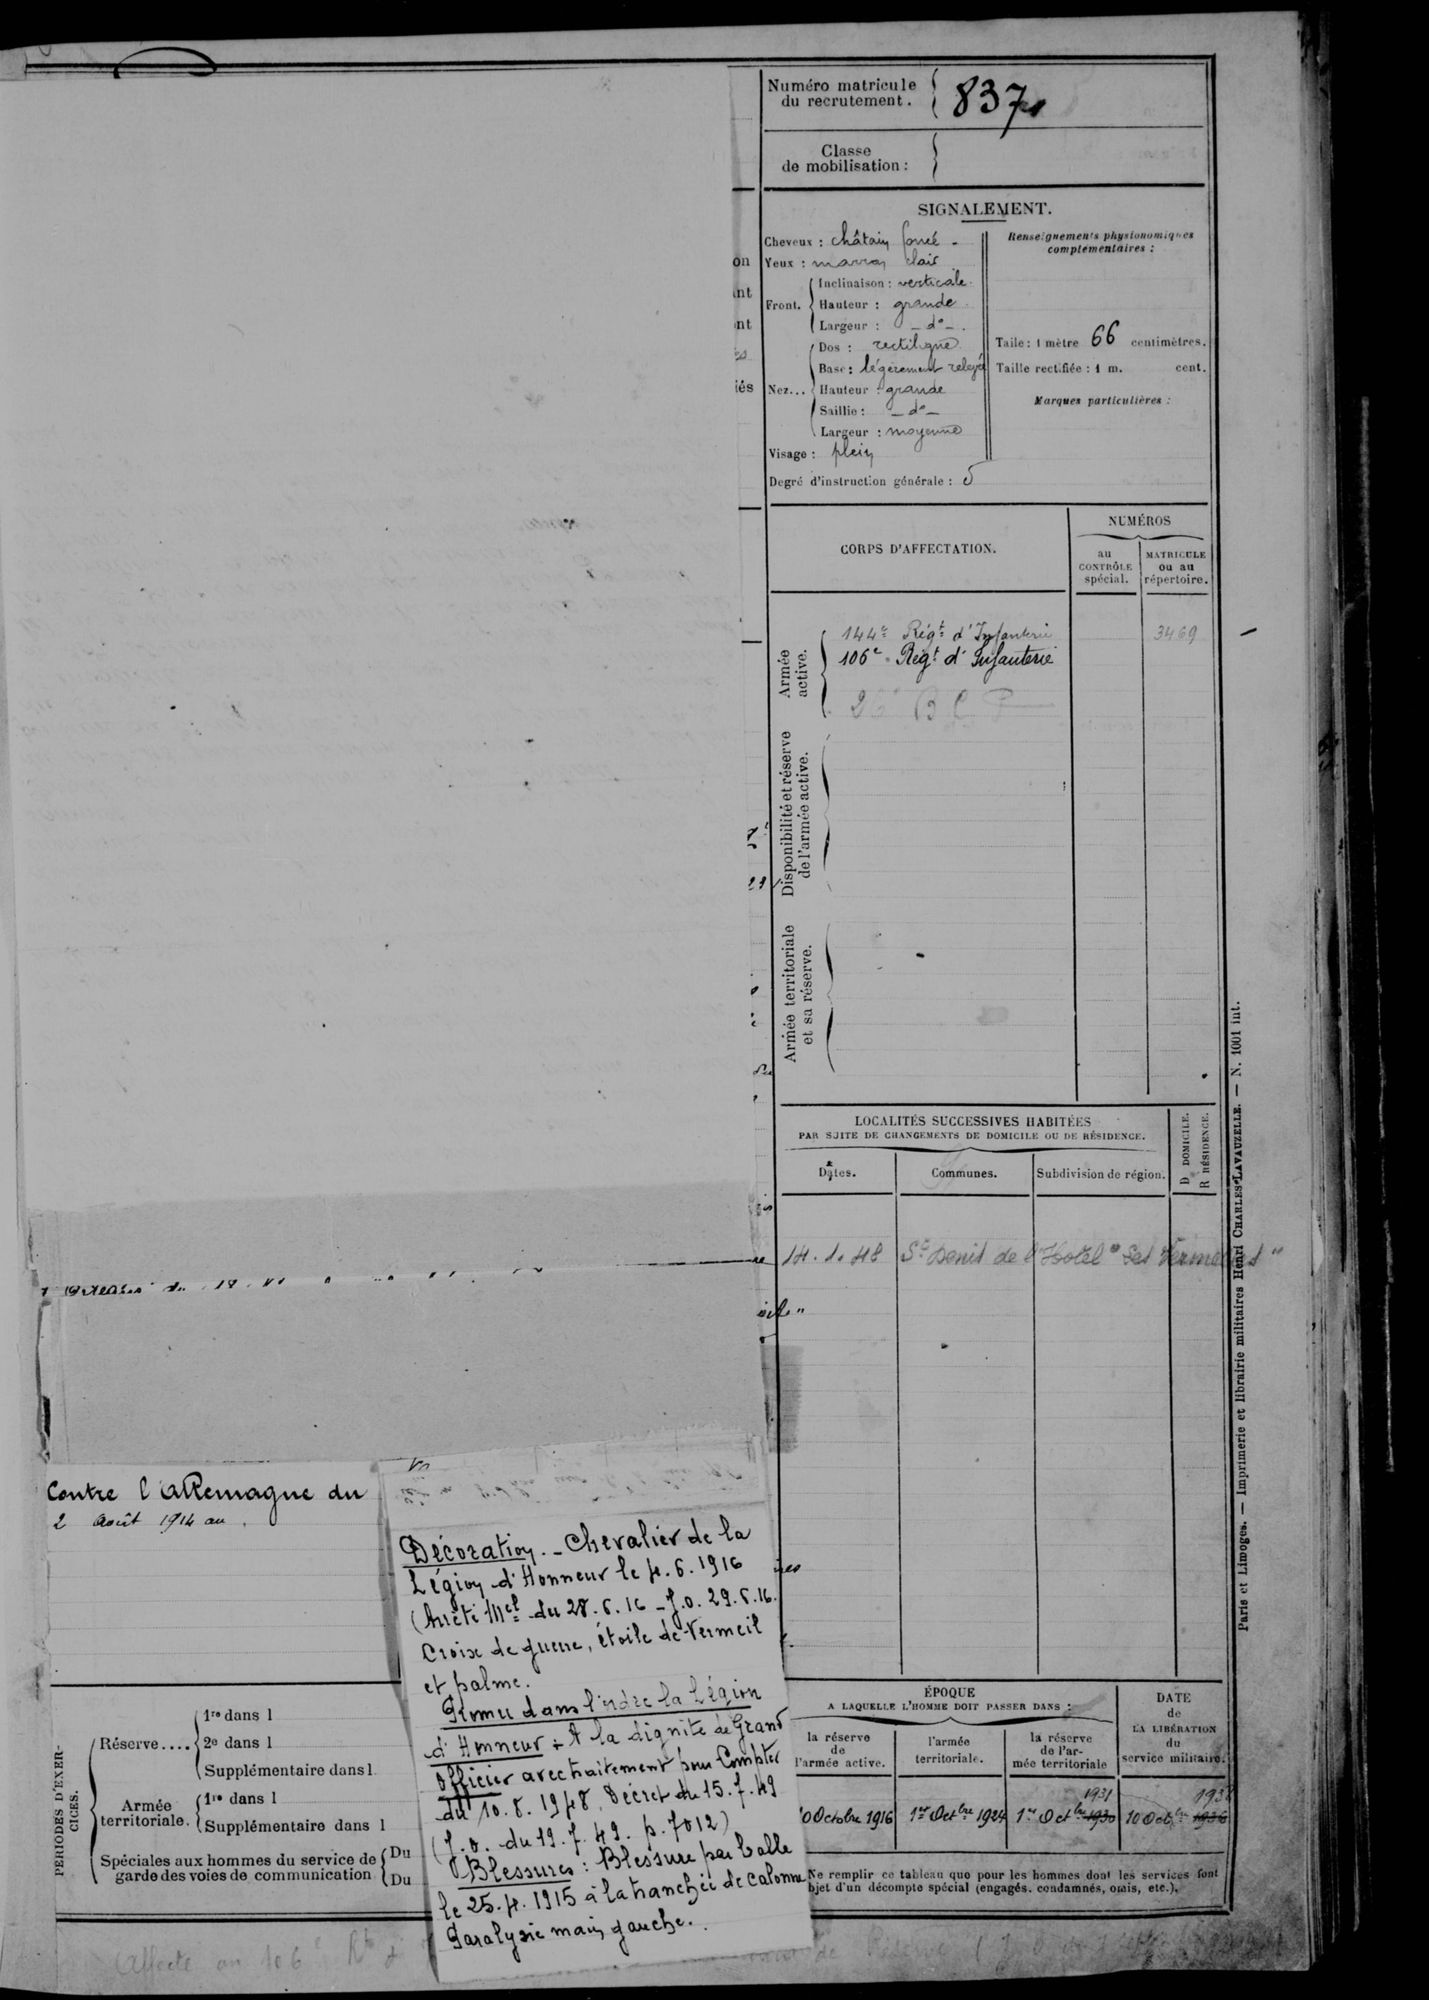 Numéro matricule
du recrutement.
837
Classe
de mobilisation :
SIGNALEMENT.
Cheveux : châtain foncé -
Yeux : marron clair
Front.
Inclinaison : verticale.
Hauteur : grande.
Largeur : - d° -.
Nez...
Dos : rectiligne
Base : légèrement relevée
Hauteur : grande
Saillie : - d° -
Largeur : moyenne
Visage : plein
Degré d'instruction générale : 5
Renseignements physionomiques
complémentaires :
Taile : 1 mètre 66 centimètres.
Taille rectifiée : 1 m. cent.
Marques particulières :
on
nt
nt
és
iés
CORPS D'AFFECTATION.
NUMÉROS
au
CONTRÔLE
spécial.
MATRICULE
ou au
répertoire.
Armée
active.
144e Régt d'Infanterie 3469
106e Régt d'Infanterie
26e B C P
Disponibilité et réserve
de l'armée active.
Armée territoriale
et sa réserve.
LOCALITÉS SUCCESSIVES HABITÉES
PAR SUITE DE CHANGEMENTS DE DOMICILE OU DE RÉSIDENCE.
Dates.
Communes.
Subdivision de région.
D DOMICILE.
R RÉSIDENCE.
14. 1. 48 St Denis de l'Hotel "Les
Contre l'Allemagne du
2 Août 1914 au
Décoration. - Chevalier de la
Légion d'Honneur le 4. 6. 1916
(Arrêté Mel du 28. 6. 16 - J.O. 29. 6. 16.
Croix de guerre, étoile de Vermeil
et palme.
Promu dans l'ordre la Légion
d'Honneur : A la dignité de Grand
Officier avec traitement pour Compter
du 10. 8. 1948. Décret du 15. 7. 49
(J.O. du 19. 7. 49. p. 7012)
Blessures : Blessure par balle
le 25. 4. 1915 à la tranchée de Calonne
Paralysie main gauche.
PÉRIODES D'EXER-
CICES.
Réserve....
1re dans l
2e dans l
Supplémentaire dans l
Armée
territoriale.
1re dans l
Supplémentaire dans l
Spéciales aux hommes du service de
garde des voies de communication
Du
Du
ÉPOQUE
A LAQUELLE L'HOMME DOIT PASSER DANS :
DATE
de
LA LIBÉRATION
du
service militaire.
la réserve
de
l'armée active.
l'armée
territoriale.
la réserve
de l'ar-
mée territoriale
1931
1938
0 Octobre 1916
1er Octbre 1924
1er Octbre 1930
10 Octbre 1936
Ne remplir ce tableau que pour les hommes dont les services font
bjet d'un décompte spécial (engagés, condamnés, omis, etc.).
Affecté au 106e
de Réserve
Paris et Limoges. — Imprimerie et librairie militaires Henri CHARLES-LAVAUZELLE. — N. 1001 int.